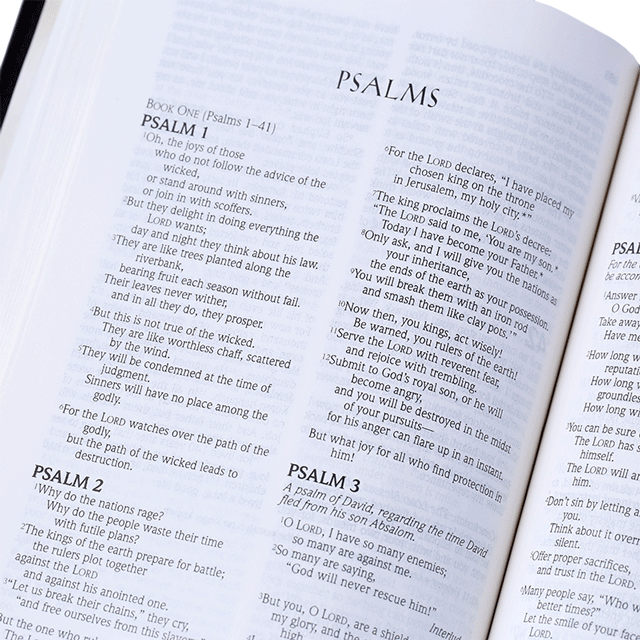 PSALMS
BOOK ONE (Psalms 1–41)
PSALM 1
1Oh, the joys of those
who do not follow the advice of the
wicked,
or stand around with sinners,
or join in with scoffers.
2But they delight in doing everything the
LORD wants;
day and night they think about his law.
3They are like trees planted along the
riverbank,
bearing fruit each season without fail.
Their leaves never wither,
and in all they do, they prosper.
4But this is not true of the wicked.
They are like worthless chaff, scattered
by the wind.
5They will be condemned at the time of
judgment.
Sinners will have no place among the
godly.
6For the LORD watches over the path of the
godly,
but the path of the wicked leads to
destruction.
PSALM 2
1Why do the nations rage?
Why do the people waste their time
with futile plans?
2The kings of the earth prepare for battle;
the rulers plot together
against the LORD
and against his anointed one.
3"Let us break their chains," they cry,
"and free ourselves from this
But the one who
6For the LORD declares, "I have placed my
chosen king on the throne
in Jerusalem, my holy city.*"
7The king proclaims the LORD's decree:
"The LORD said to me, 'You are my son.*
Today I have become your Father.*
8Only ask, and I will give you the nations as
your inheritance,
the ends of the earth as your possession.
9You will break them with an iron rod
and smash them like clay pots.'"
10Now then, you kings, act wisely!
Be warned, you rulers of the earth!
11Serve the LORD with reverent fear,
and rejoice with trembling.
12Submit to God's royal son, or he will
become angry,
and you will be destroyed in the midst
of your pursuits—
for his anger can flare up in an instant.
But what joy for all who find protection in
him!
PSALM 3
A psalm of David, regarding the time David
fled from his son Absalom.
1O LORD, I have so many enemies;
so many are against me.
2So many are saying,
"God will never rescue him!"
3But you, O LORD, are a shield
my glory, and the
high.
PSAL
For the
be accom
1Answer
O God
Take away
Have me
2How long w
reputati
How long w
groundles
How long w
3You can be sure
The LORD has s
himself.
The LORD will an
him.
4Don't sin by letting a
you.
Think about it over
silent.
5Offer proper sacrifices,
and trust in the LORD.
6Many people say, "Who w
better times?"
Let the smile of your fac
LORD